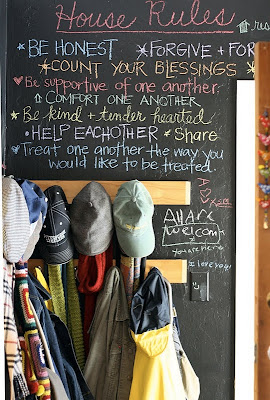 House Rules
* BE HONEST * FORGIVE + FOR
* COUNT YOUR BLESSINGS *
♥ Be supportive of one another:
⇧ COMFORT ONE ANOTHER
* Be kind + tender hearted
• HELP EACHOTHER * Share
♥ Treat one another the way you
would like to be treated.
All Are
welcome
you are here
I love you!